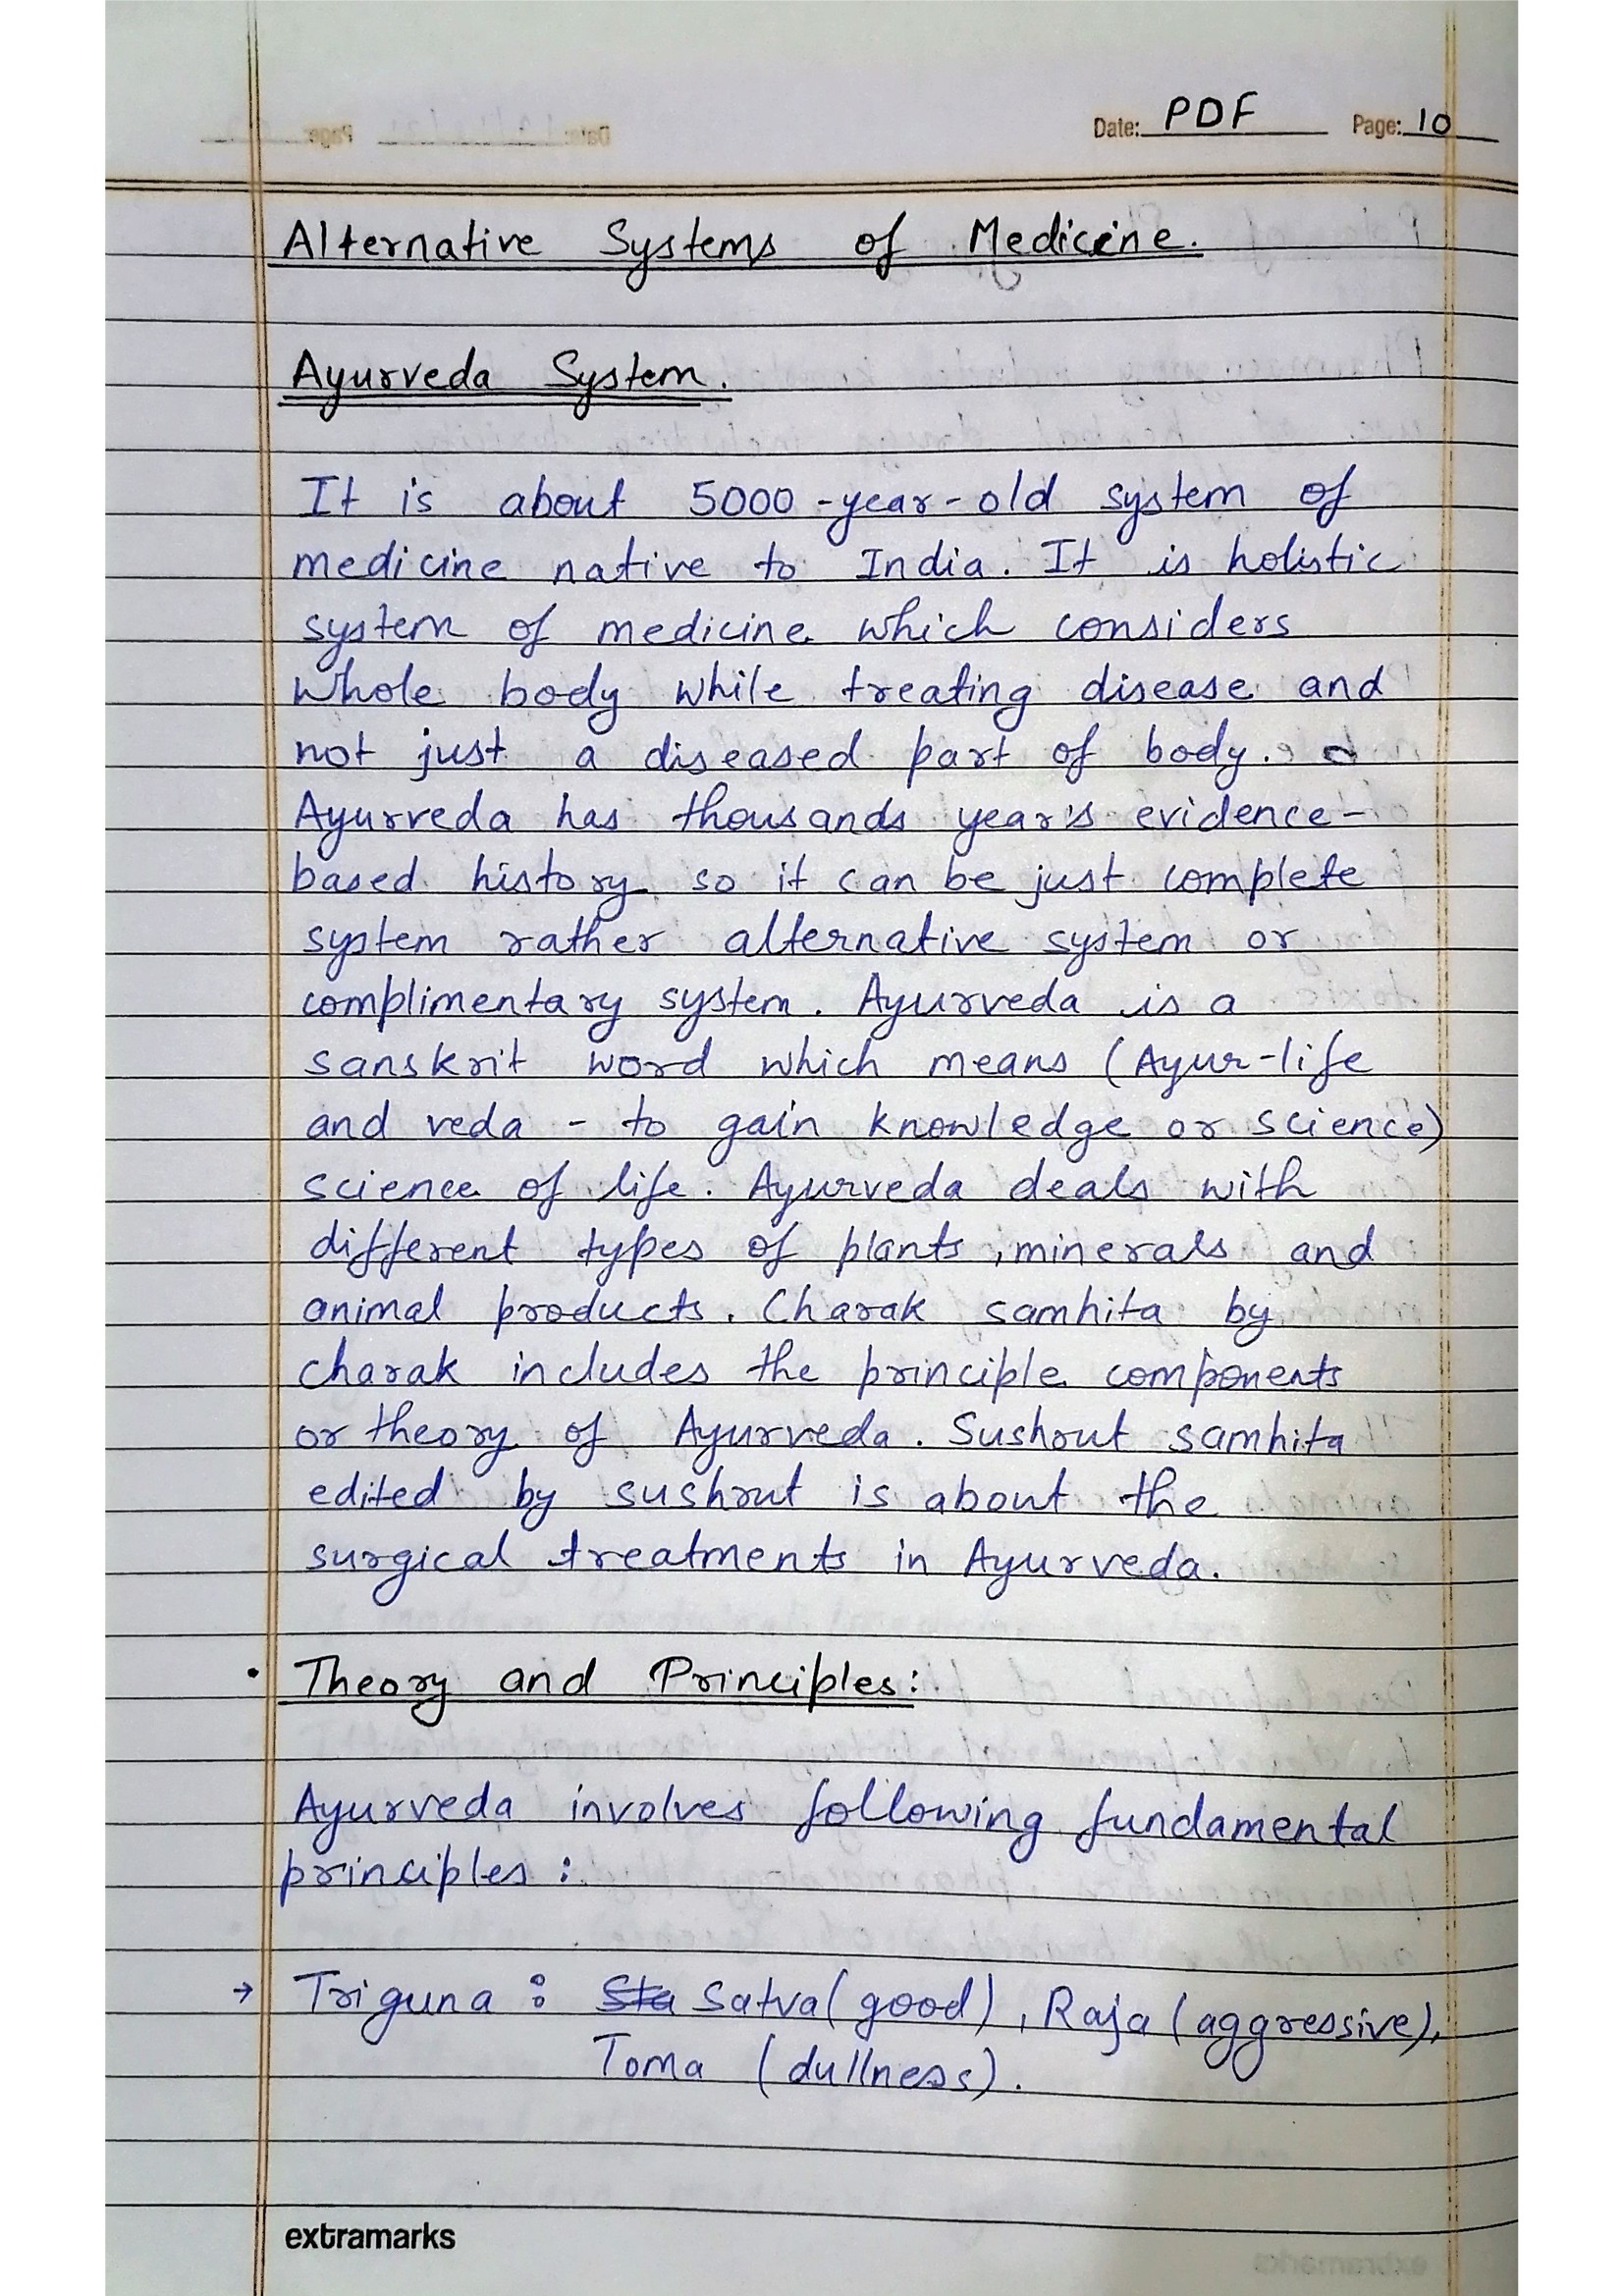 Date: PDF Page: 10
Alternative Systems of Medicine.
Ayurveda System.
It is about 5000-year-old system of
medicine native to India. It is holistic
system of medicine which considers
whole body while treating disease and
not just a diseased part of body.
Ayurveda has thousands year's evidence-
based history so it can be just complete
system rather alternative system or
complimentary system. Ayurveda is a
sanskrit word which means (Ayur-life
and veda - to gain knowledge or science)
science of life. Ayurveda deals with
different types of plants, minerals and
animal products. Charak samhita by
charak includes the principle components
or theory of Ayurveda. Sushrut samhita
edited by sushrut is about the
surgical treatments in Ayurveda.
• Theory and Principles:
Ayurveda involves following fundamental
principles:
→ Triguna: Sta Satva(good), Raja (aggressive),
Toma (dullness).
extramarks